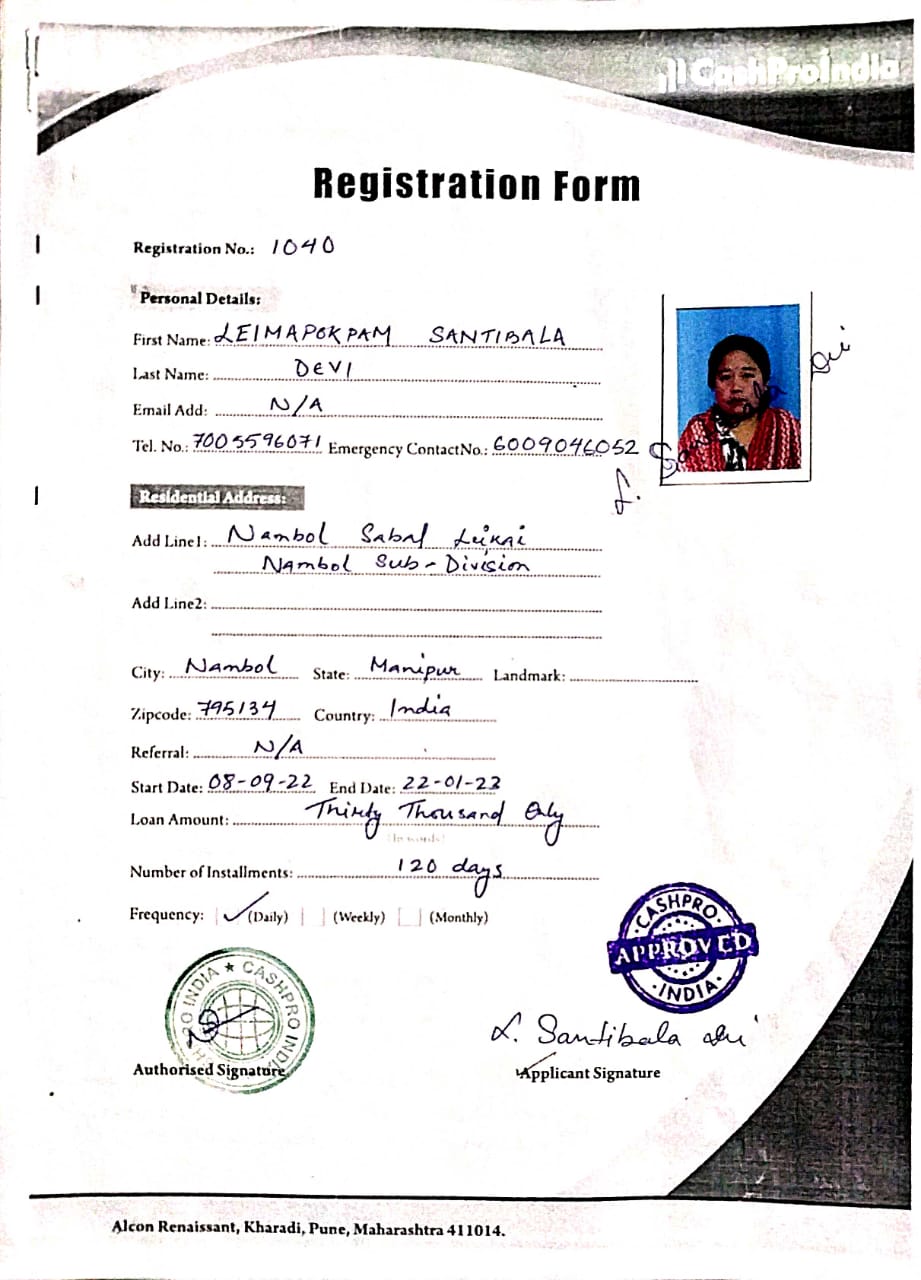 CashProIndia
Registration Form
Registration No.: 1040
Personal Details:
First Name: LEIMAPOKPAM SANTIBALA
Last Name: DEVI
Email Add: N/A
Tel. No.: 7005596071 Emergency ContactNo.: 6009046052
L. Santibala Devi
Residential Address:
Add Line1: Nambol Sabal Leikai
Nambol Sub-Division
Add Line2:
City: Nambol State: Manipur Landmark:
Zipcode: 795134 Country: India
Referral: N/A
Start Date: 08-09-22 End Date: 22-01-23
Loan Amount: Thirty Thousand Only
(In words)
Number of Installments: 120 days
Frequency: (Daily) (Weekly) (Monthly)
CASHPRO
APPROVED
INDIA
INDIA ★ CASHPRO INDIA
L. Santibala Devi
Authorised Signature Applicant Signature
Alcon Renaissant, Kharadi, Pune, Maharashtra 411014.